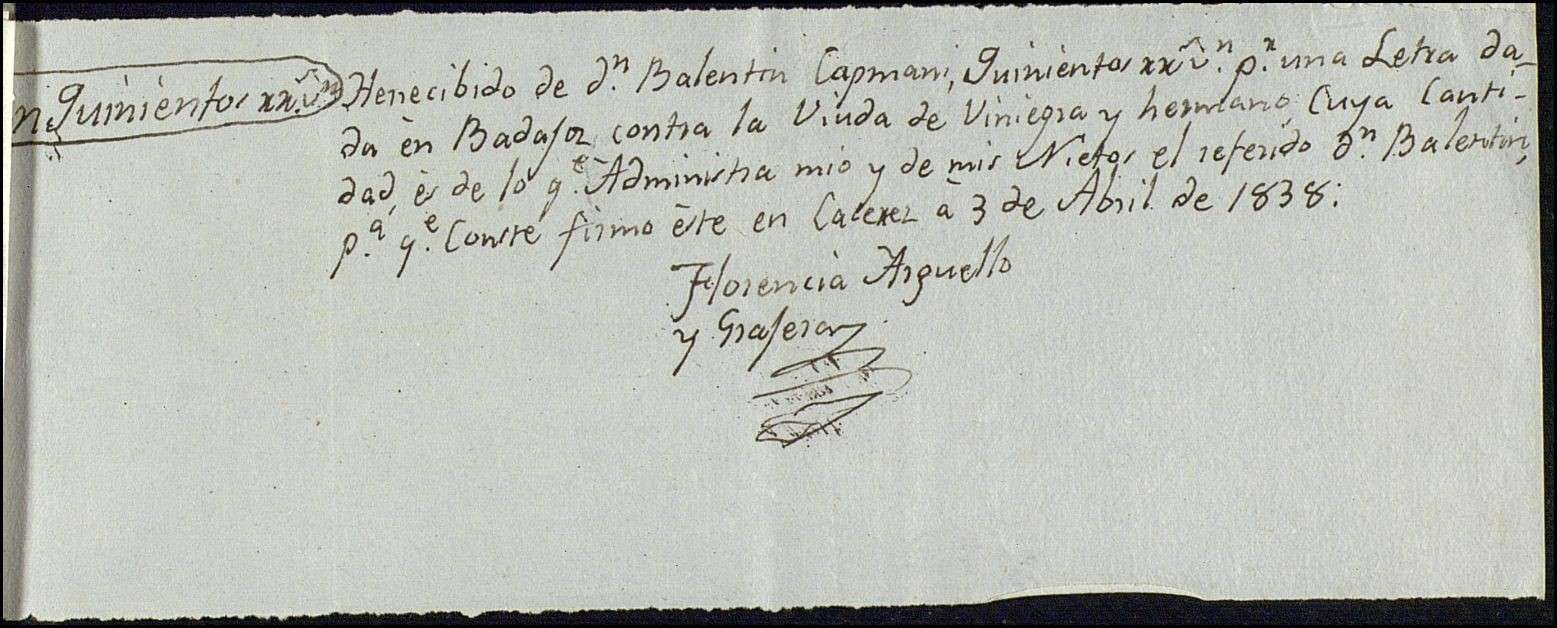 n Quinientos xx.v.n
He recibido de d.n Balentin Capmani, Quinientos xx v.n p.r una Letra da-
da èn Badajoz contra la Viuda de Viniegra y hermano, Cuya Canti-
dad, ès de lo q.e Administra mio y de mis Nietos el referido d.n Balentin,
p.a q.e Conste firmo èste en Cacerez à 3 de Abril de 1838:
Florencia Arguello
y Grajera